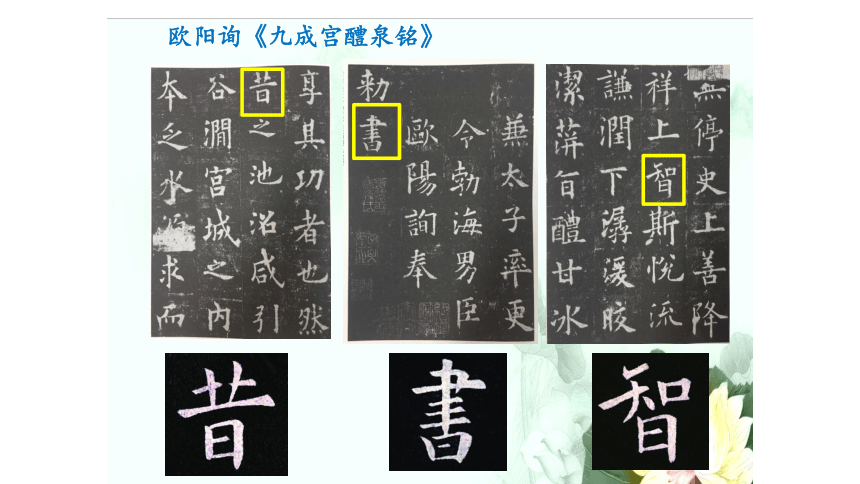 欧阳询《九成宫醴泉铭》
享其功者也然
昔之池沼咸引
谷澗宮城之内
本乏水源求而
兼太子率更
令勃海男臣
歐陽詢奉
勅
書
無停史上善降
祥上智斯悅流
謙潤下潺湲皎
潔蓱旨醴甘冰
昔
書
智